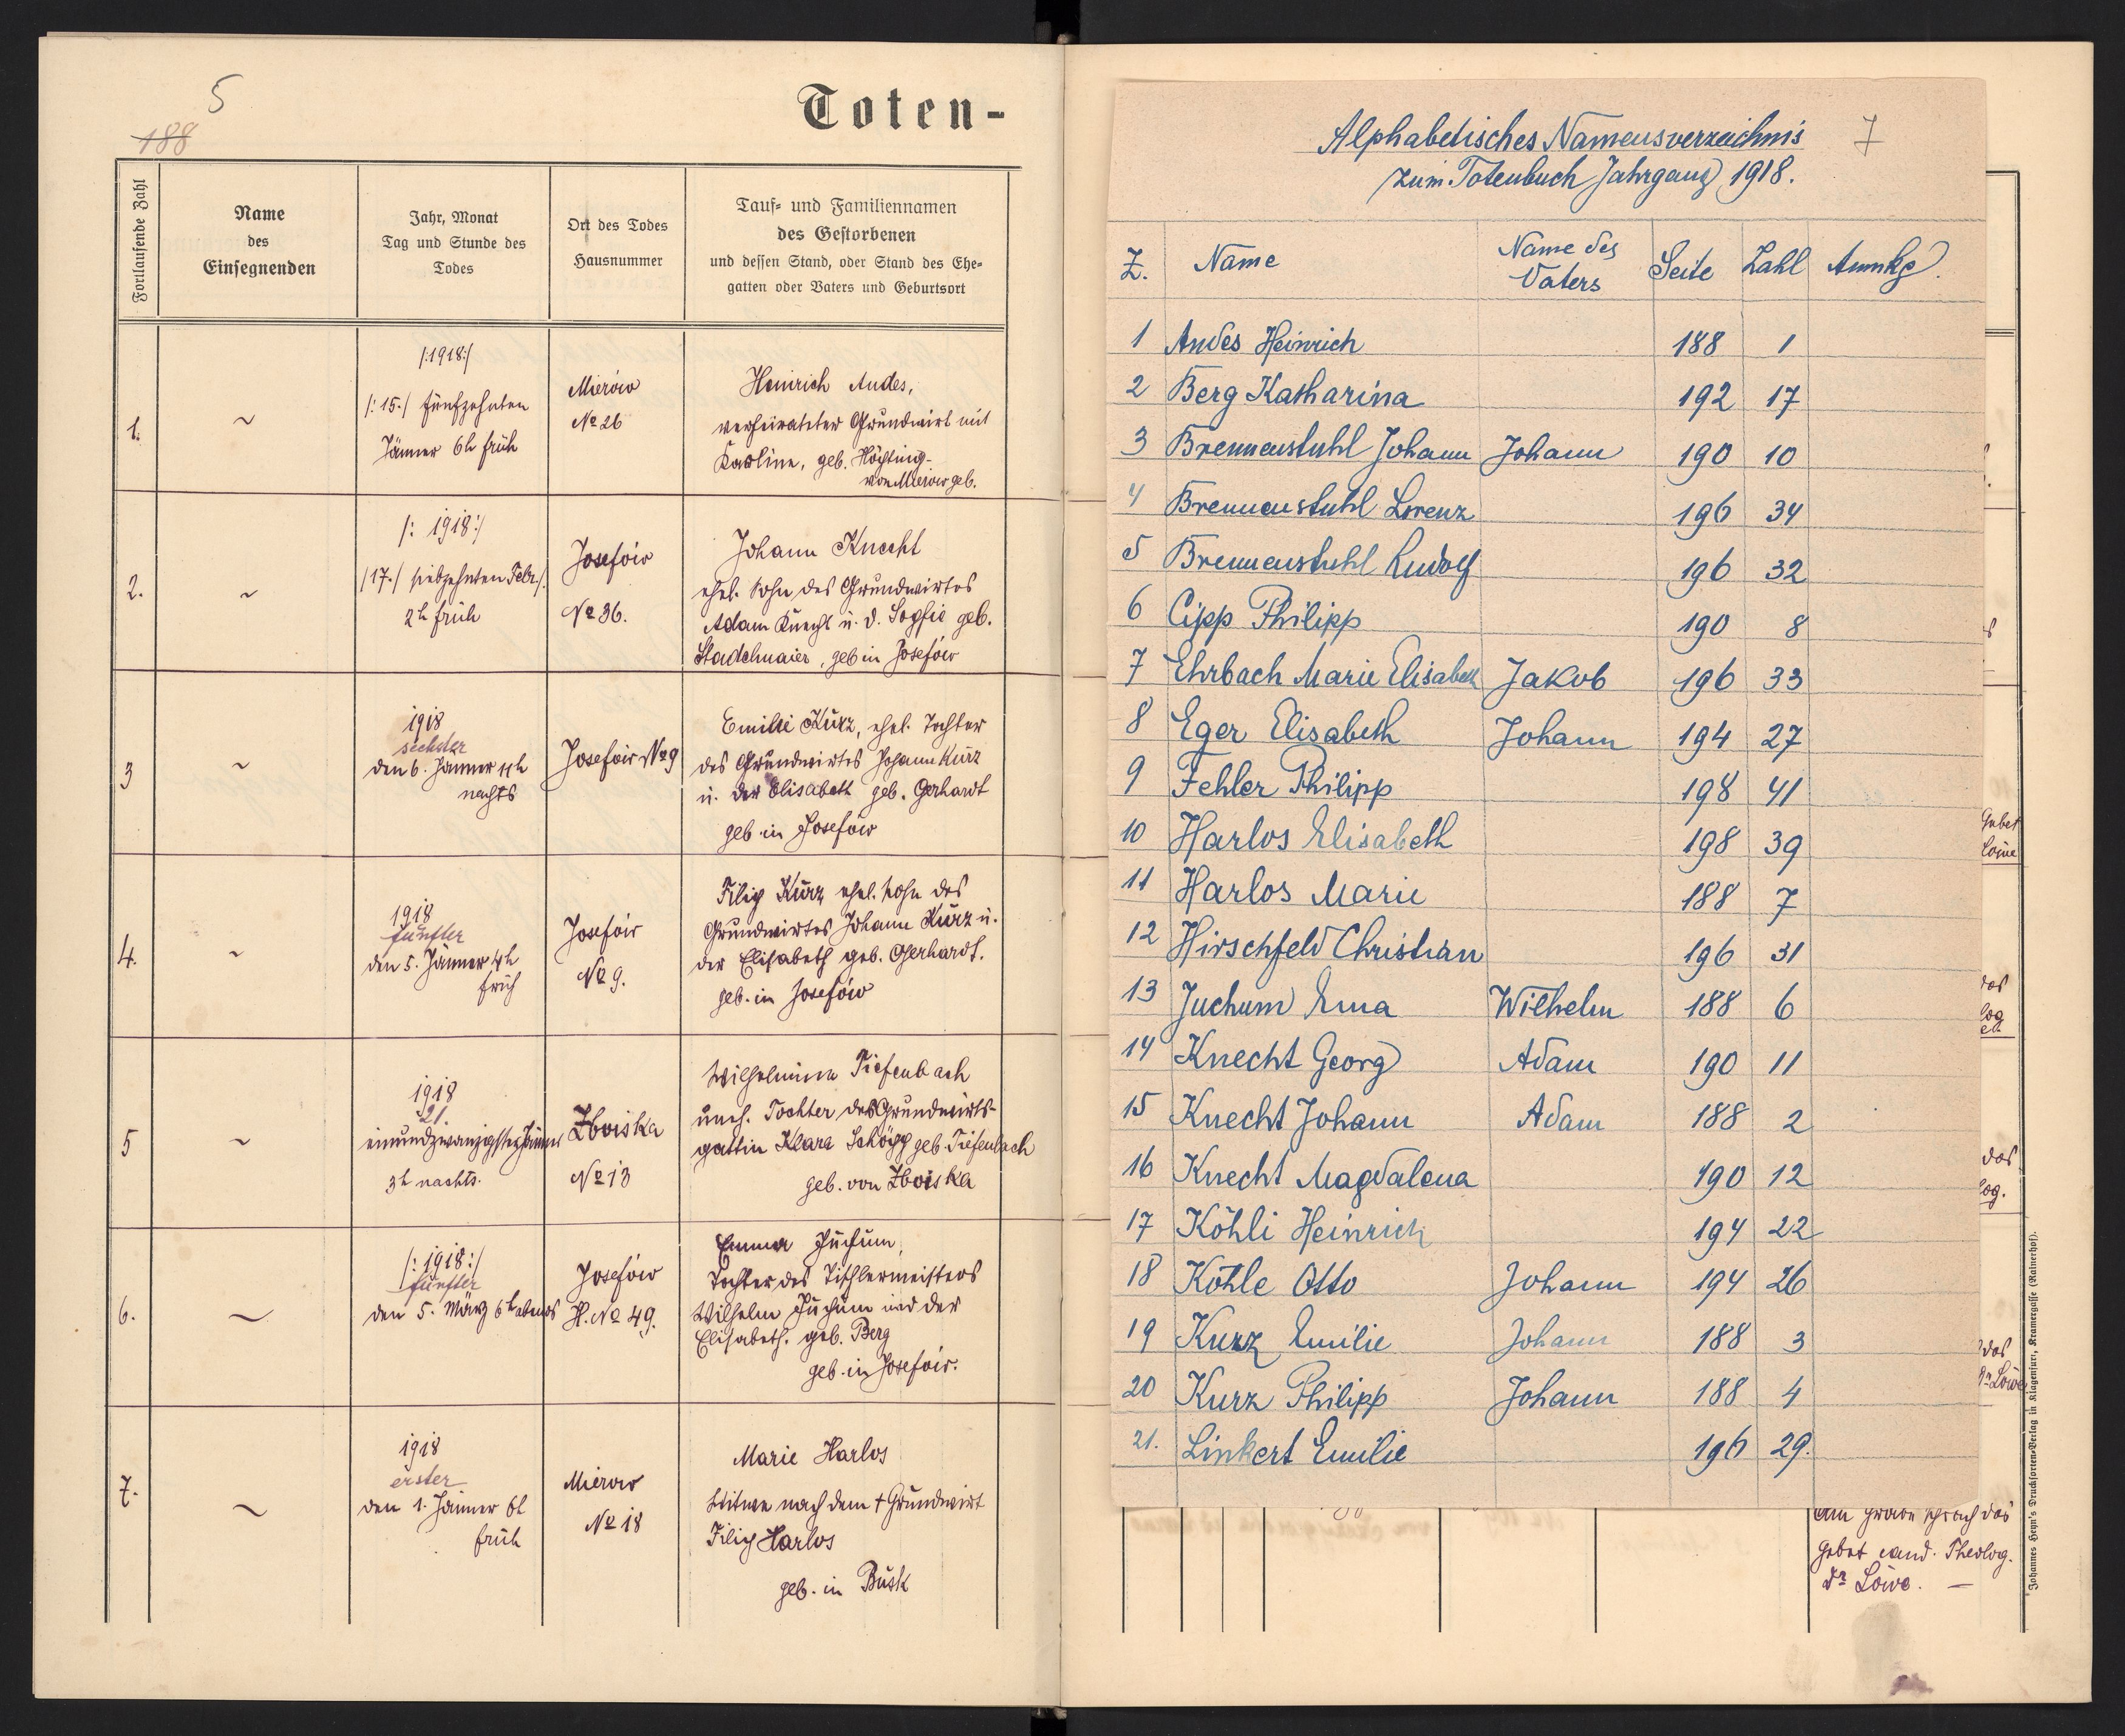 5
188
Toten-
Fortlaufende Zahl
Name
des
Einsegnenden
Jahr, Monat
Tag und Stunde des
Todes
Ort des Todes
Hausnummer
Tauf- und Familiennamen
des Gestorbenen
und dessen Stand, oder Stand des Ehe-
gatten oder Vaters und Geburtsort
1.
~
/:1918:/
/:15:/ fünfzehnten
Jänner 6h früh
Mierów
No 26
Heinrich Andes,
verheirateter Grundwirt mit
Karline, geb. Höchting-
von Mierów geb.
2.
~
/: 1918:/
/17./ siebzehnten Febr/.
2h früh
Josefów
No 36.
Johann Knecht
ehel. Sohn des Grundwirtes
Adam Knecht u. d. Sophie geb.
Stadelmaier, geb in Josefów
3
~
1918
sechster
den 6. Jänner 11h
nachts
Josefów No 9
Emilie Kurz, ehel. Tochter
des Grundwirtes Johann Kurz
u. der Elisabeth geb. Gerhardt
geb. in Josefów
4.
~
1918
fünfter
den 5. Jänner 4h
früh
Josefów
No 9.
Filip Kurz ehel. Sohn des
Grundwirtes Johann Kurz u.
der Elisabeth geb. Gerhardt.
geb. in Josefów
5
~
1918
21.
einundzwanzigster Jänner
3h nachts.
Zboiska
No 13
Wilhelmina Tiefenbach
uneh. Tochter des Grundwirts-
gattin Klara Schöpp geb. Tiefenbach
geb. von Zboiska
6.
~
/: 1918:/
fünfter
den 5. März 6h abends
Josefów
H. No 49.
Emma Juchum,
Tochter des Tischlermeisters
Wilhelm Juchum und der
Elisabeth. geb. Berg
geb. in Josefów.
7.
~
1918
erster
den 1. Jänner 6h
früh
Mierow
No 18
Marie Harlos
Witwe nach dem + Grundwirt
Filip Harlos
geb. in Busk
Alphabetisches Namensverzeichnis
7
zum Totenbuch Jahrgang 1918.
Z. Name Name des Vaters Seite Zahl Anmkg.
1 Andes Heinrich 188 1
2 Berg Katharina 192 17
3 Brennenstuhl Johann Johann 190 10
4 Brennenstuhl Lorenz 196 34
5 Brennenstuhl Rudolf 196 32
6 Cipp Philipp 190 8
7 Ehrbach Marie Elisabeth Jakob 196 33
8 Eger Elisabeth Johann 194 27
9 Fehler Philipp 198 41
10 Harlos Elisabeth 198 39
11 Harlos Marie 188 7
12 Hirschfeld Christian 196 31
13 Juchum Ema Wilhelm 188 6
14 Knecht Georg Adam 190 11
15 Knecht Johann Adam 188 2
16 Knecht Magdalena 190 12
17 Köhli Heinrich 194 22
18 Köhle Otto Johann 194 26
19 Kurz Emilie Johann 188 3
20 Kurz Philipp Johann 188 4
21. Linkert Emilie 196 29.
Gebet
das
das
das
Am Grabe sprach das
Gebet cand. Theolog.
Dr Löwe. —
Johannes Heyn's Drucksorten-Verlag in Klagenfurt, Kramergasse (Rainerhof).